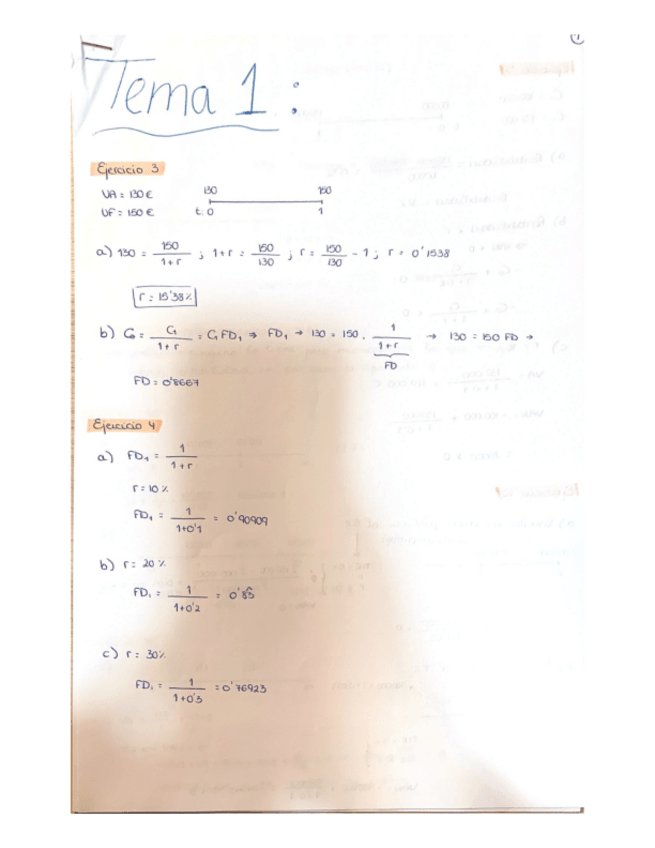 Tema 1 :
Ejercicio 3
VA = 130 €
130 150
VF = 150 €
t: 0 1
a) 130 = 150 / 1+r ; 1+r = 150 / 130 ; r = 150 / 130 - 1 ; r = 0'1538
r = 15'38 %
b) C₀ = C₁ / 1+r = C₁ FD₁ ⇒ FD₁ → 130 = 150 . 1 / 1+r → 130 = 150 FD →
FD
FD = 0'8667
Ejercicio 4
a) FD₁ = 1 / 1+r
r = 10 %
FD₁ = 1 / 1+0'1 = 0'90909
b) r = 20 %
FD₁ = 1 / 1+0'2 = 0'83
c) r = 30%
FD₁ = 1 / 1+0'3 = 0'76923